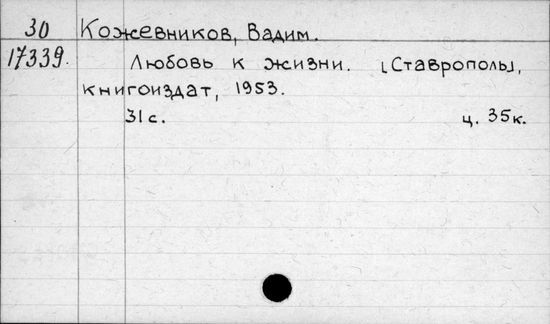 30 Кожевников, Вадим.
17339. Любовь к жизни. [Ставрополь],
книгоиздат, 1953.
31с. ц. 35к.